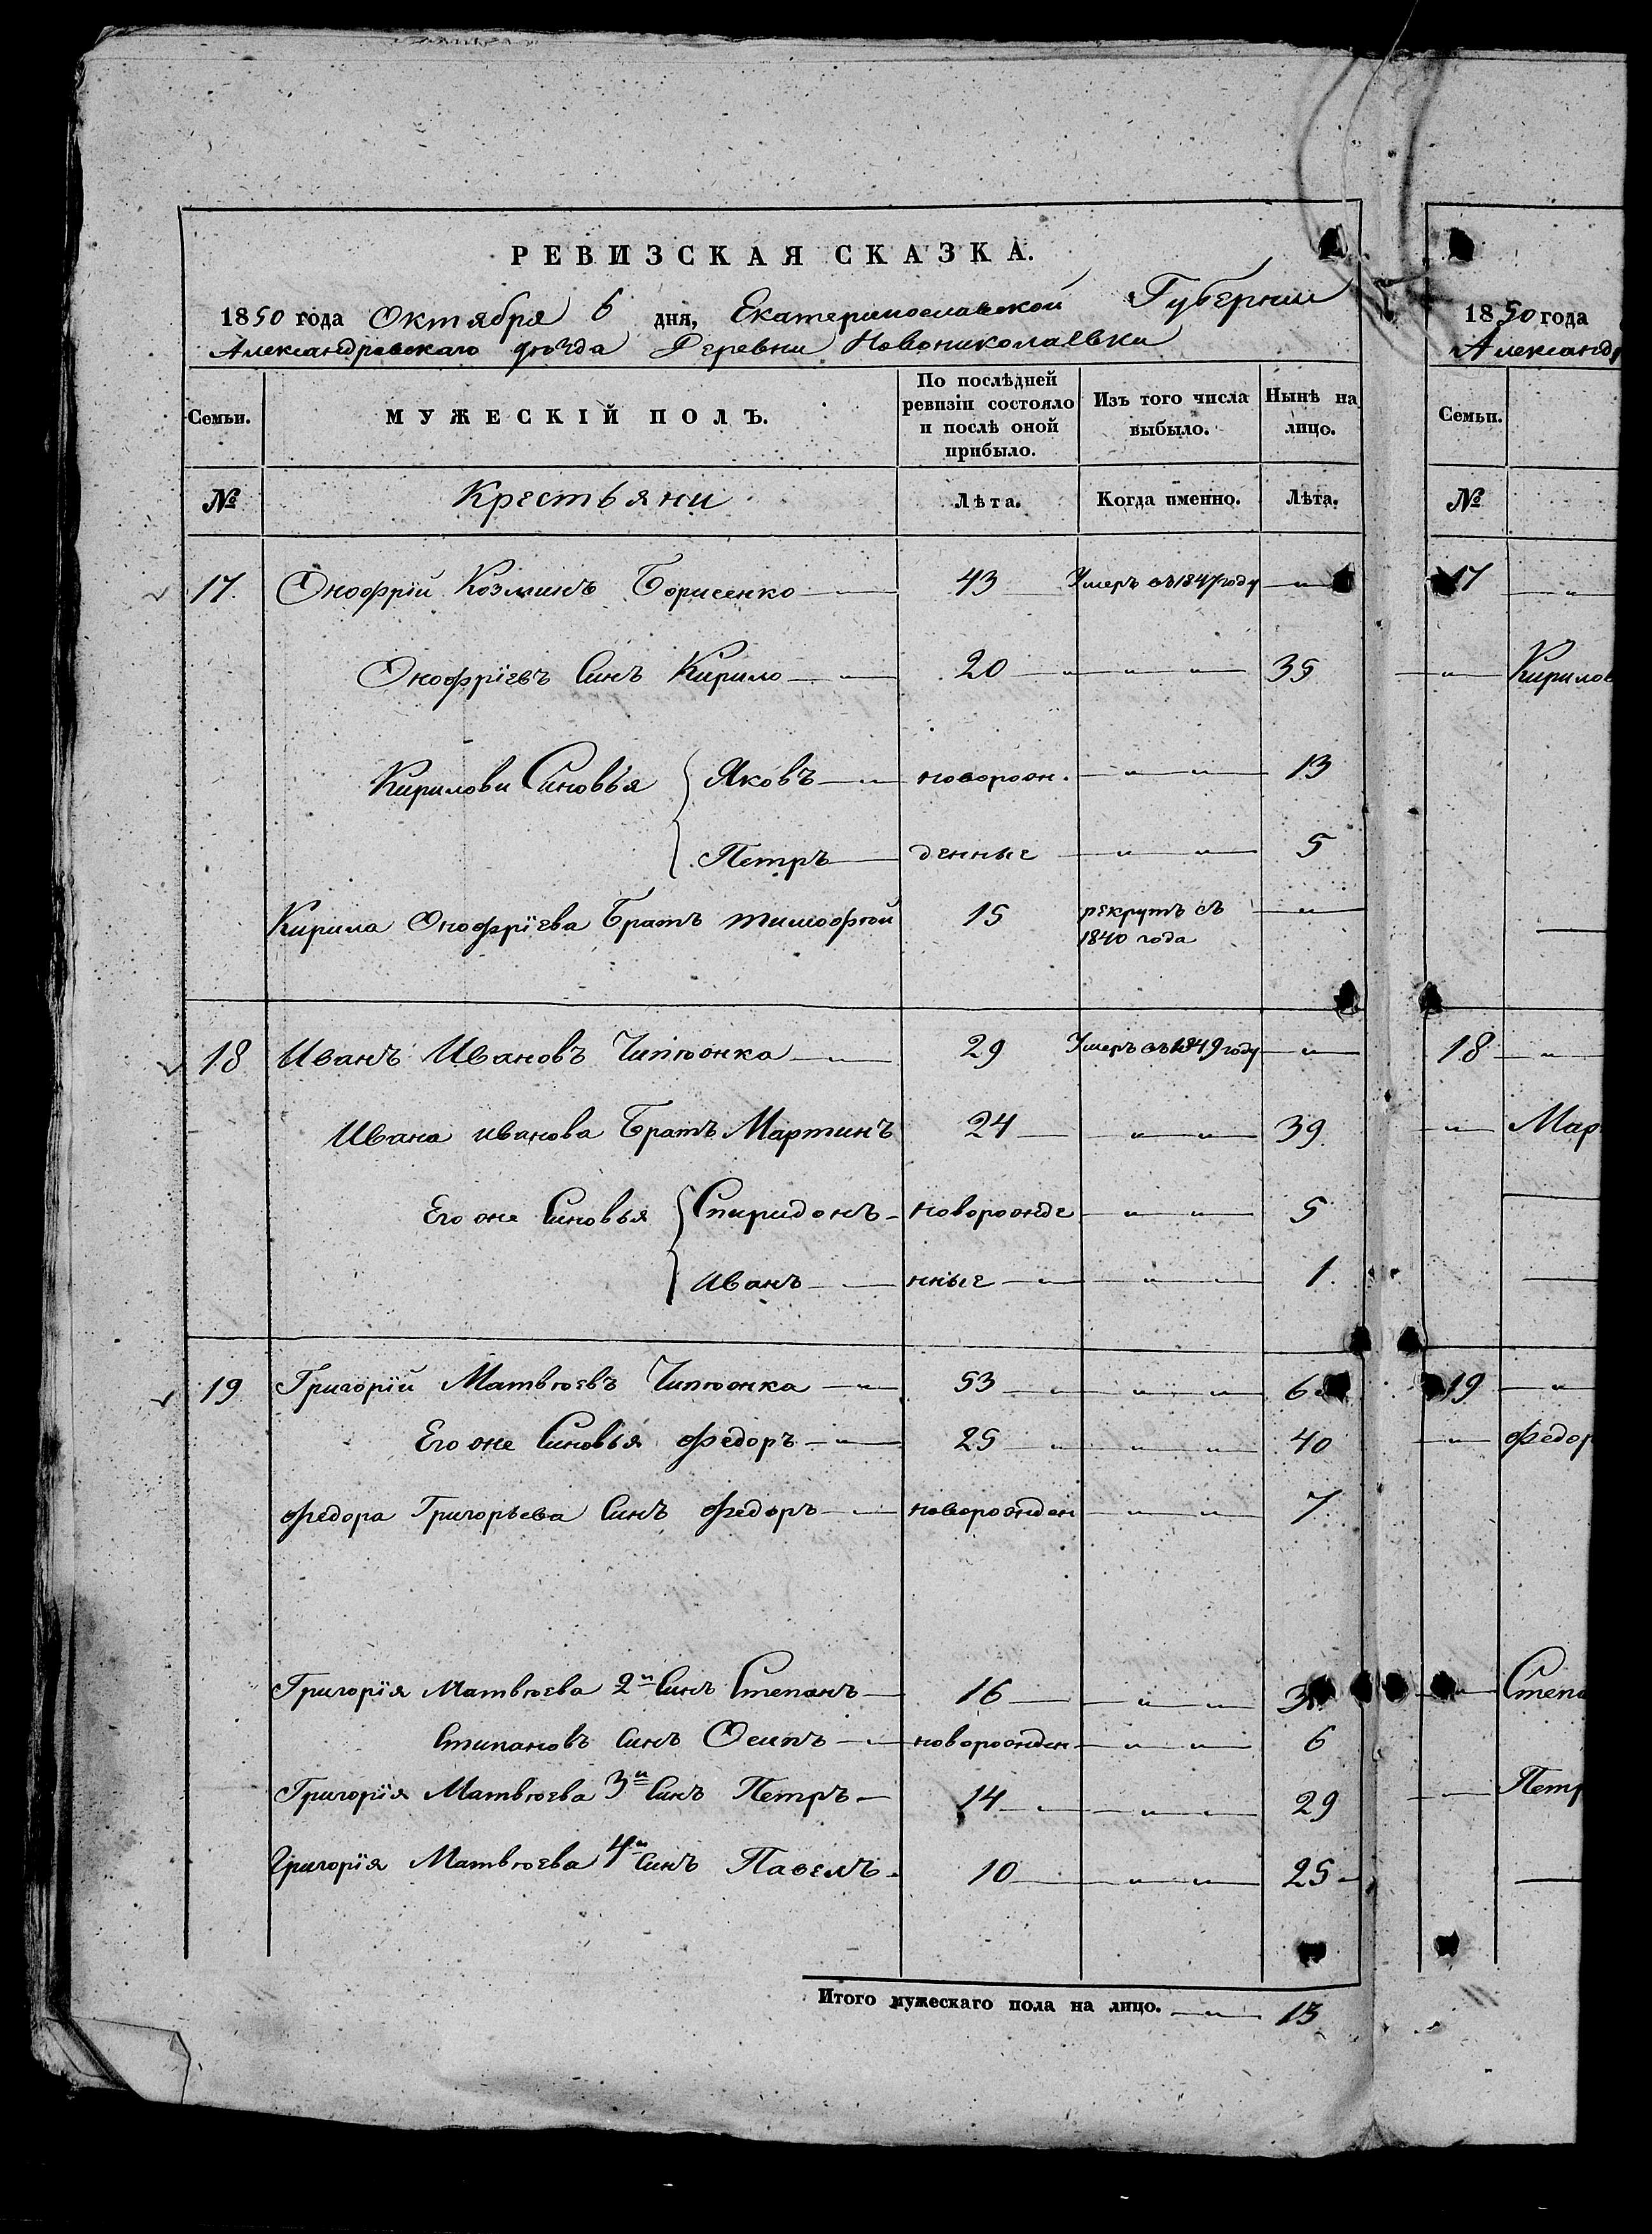 РЕВИЗСКАЯ СКАЗКА.
1850 года Октября 6 дня, Екатеринославской Губернии
Александровскаго уѣзда Деревни Новониколаевки
Семьи. МУЖЕСКІЙ ПОЛЪ. По послѣдней ревизіи состояло и послѣ оной прибыло. Изъ того числа выбыло. Нынѣ на лицо.
№ Крестьяни Лѣта. Когда именно. Лѣта.
17. Онофрій Козминъ Борисенко 43 Умеръ въ 1847 году
Онофріевъ Синъ Кирило 20 35
Кирилови Синовья Яковъ новорож. 13
Петръ денные 5
Кирила Онофріева Братъ тимофѣй 15 рекрутъ съ
1840 года
18 Иванъ Ивановъ Чипѣжка 29 Умеръ въ 1849 году
Ивана иванова Братъ Мартинъ 24 39.
Его же Синовья Спиридонъ новорожде 5
иванъ нные 1.
19 Григорій Матвѣевъ Чипѣжка 53 6
Его же Синовья федоръ 25 40
федора Григорьева Синъ федоръ новорожден 7
Григорія Матвѣева 2й Синъ Степанъ 16 3
Стипановъ Синъ Осипъ новорожден 6
Григорія Матвѣева 3й Синъ Петръ 14 29
Григорія Матвѣева 4й Синъ Павелъ 10 25
Итого мужескаго пола на лицо. 13
1850 года
Александр
Семьи.
№
17
Кирилов
18
Мар
19
федор
Степа
Петр